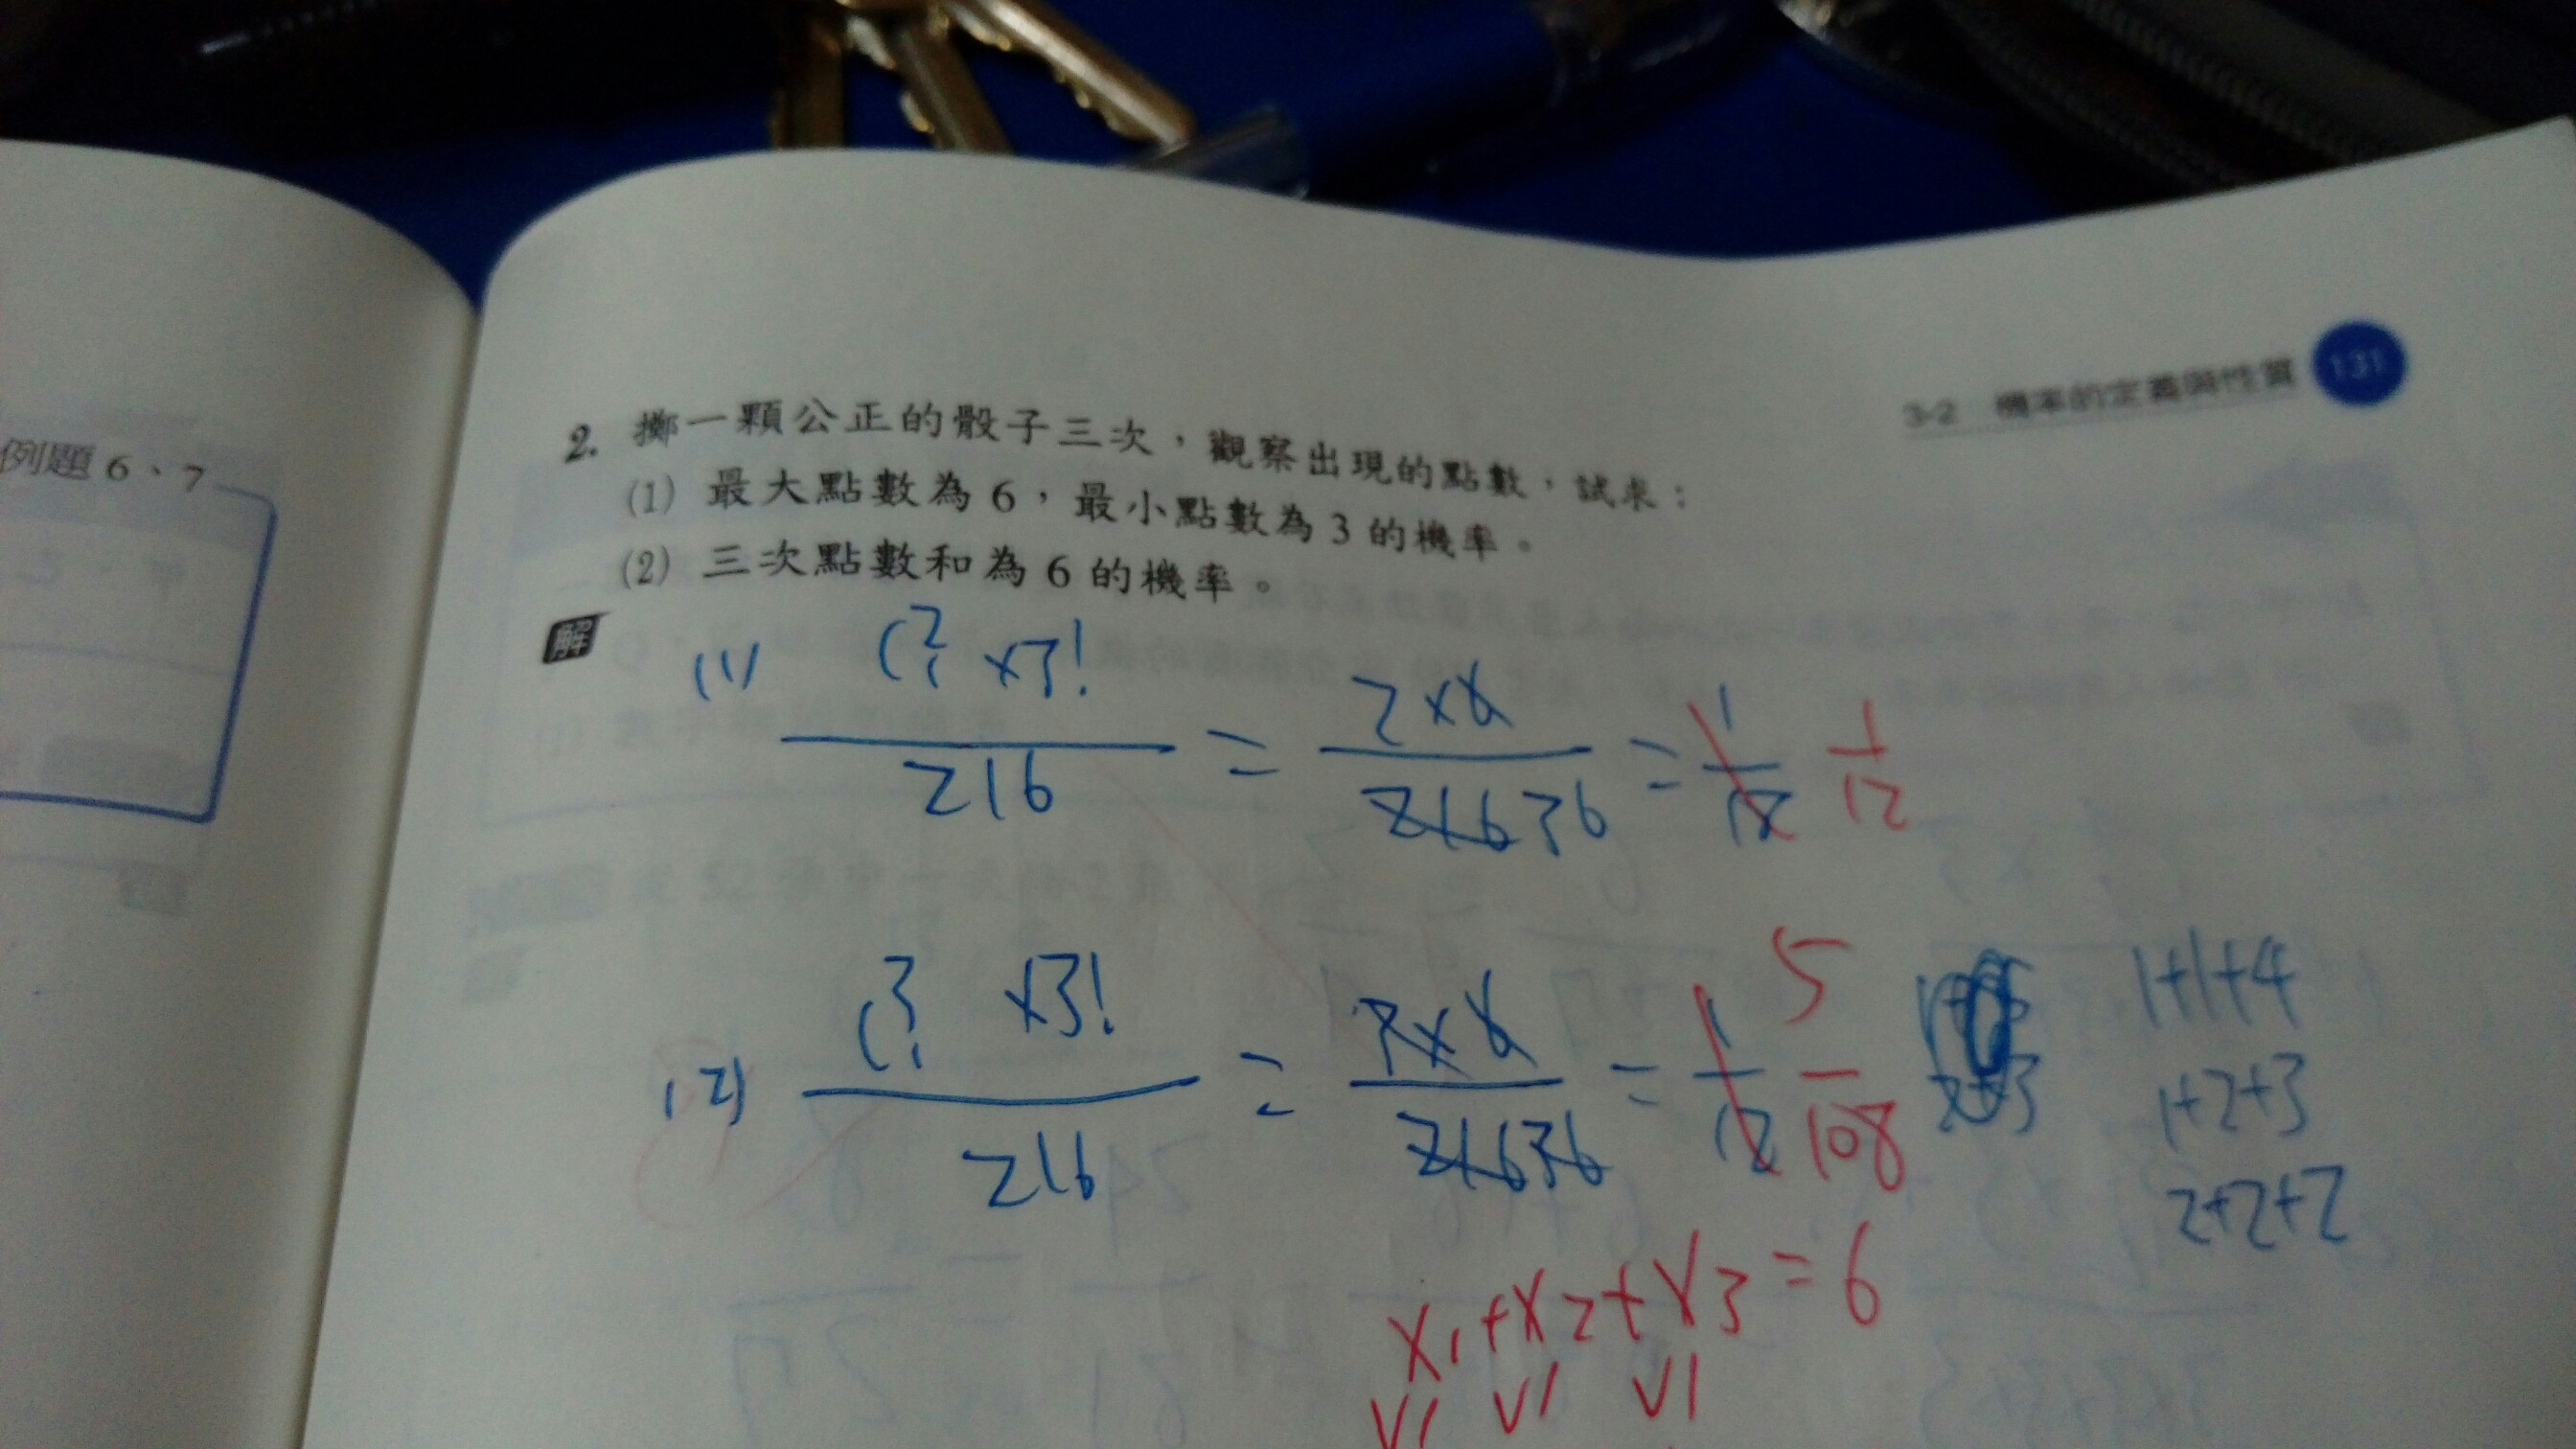 3-2 機率的定義與性質 131
例題 6、7
2. 擲一顆公正的骰子三次，觀察出現的點數，試求：
(1) 最大點數為 6，最小點數為 3 的機率。
(2) 三次點數和為 6 的機率。
解
(1) C²₁ ×3! / 216 = 2×6 / 216 36 = 1/18 1/12
(2) C³₁ ×3! / 216 = 3×6 / 216 36 = 1/12 5/108
1+1+4
1+2+3
2+2+2
x₁+x₂+x₃=6